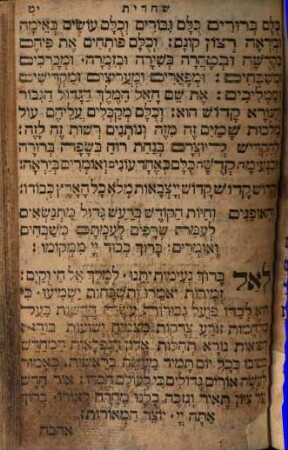 שחרית יט
כלם ברורים כלם גבורים וכלם עושים באימה
וביראה רצון קונם: וכלם פותחים את פיהם
בקדשה ובטהרה בשירה ובזמרה: ומברכים
ומשבחים: ומפארים ומעריצים: ומקדישים
וממליכים: את שם האל המלך הגדול הגבור
והנורא קדוש הוא: וכלם מקבלים עליהם עול
מלכות שמים זה מזה: ונותנים רשות זה לזה:
להקדיש ליוצרם בנחת רוח בשפה ברורה
ובנעימה קדשה כלם כאחד עונים ואומרים ביראה:
קדוש קדוש קדוש יי צבאות מלא כל הארץ כבודו:
והאופנים וחיות הקודש ברעש גדול מתנשאים
לעמת שרפים לעמתם משבחים
ואומרים: ברוך כבוד יי ממקומו:
לאל ברוך נעימות יתנו: למלך אל חי וקים:
זמירות יאמרו ותשבחות ישמיעו: כי
הוא לבדו פועל גבורות: עשה חדשות בעל
מלחמות זורע צדקות מצמיח ישועות בורא
רפואות נורא תהלות אדון הנפלאות המחדש
בטובו בכל יום תמיד מעשה בראשית: כאמור
לעשה אורים גדולים כי לעולם חסדו: אור חדש
על ציון תאיר ונזכה כלנו מהרה לאורו: ברוך
אתה יי יוצר המאורות:
אהבה